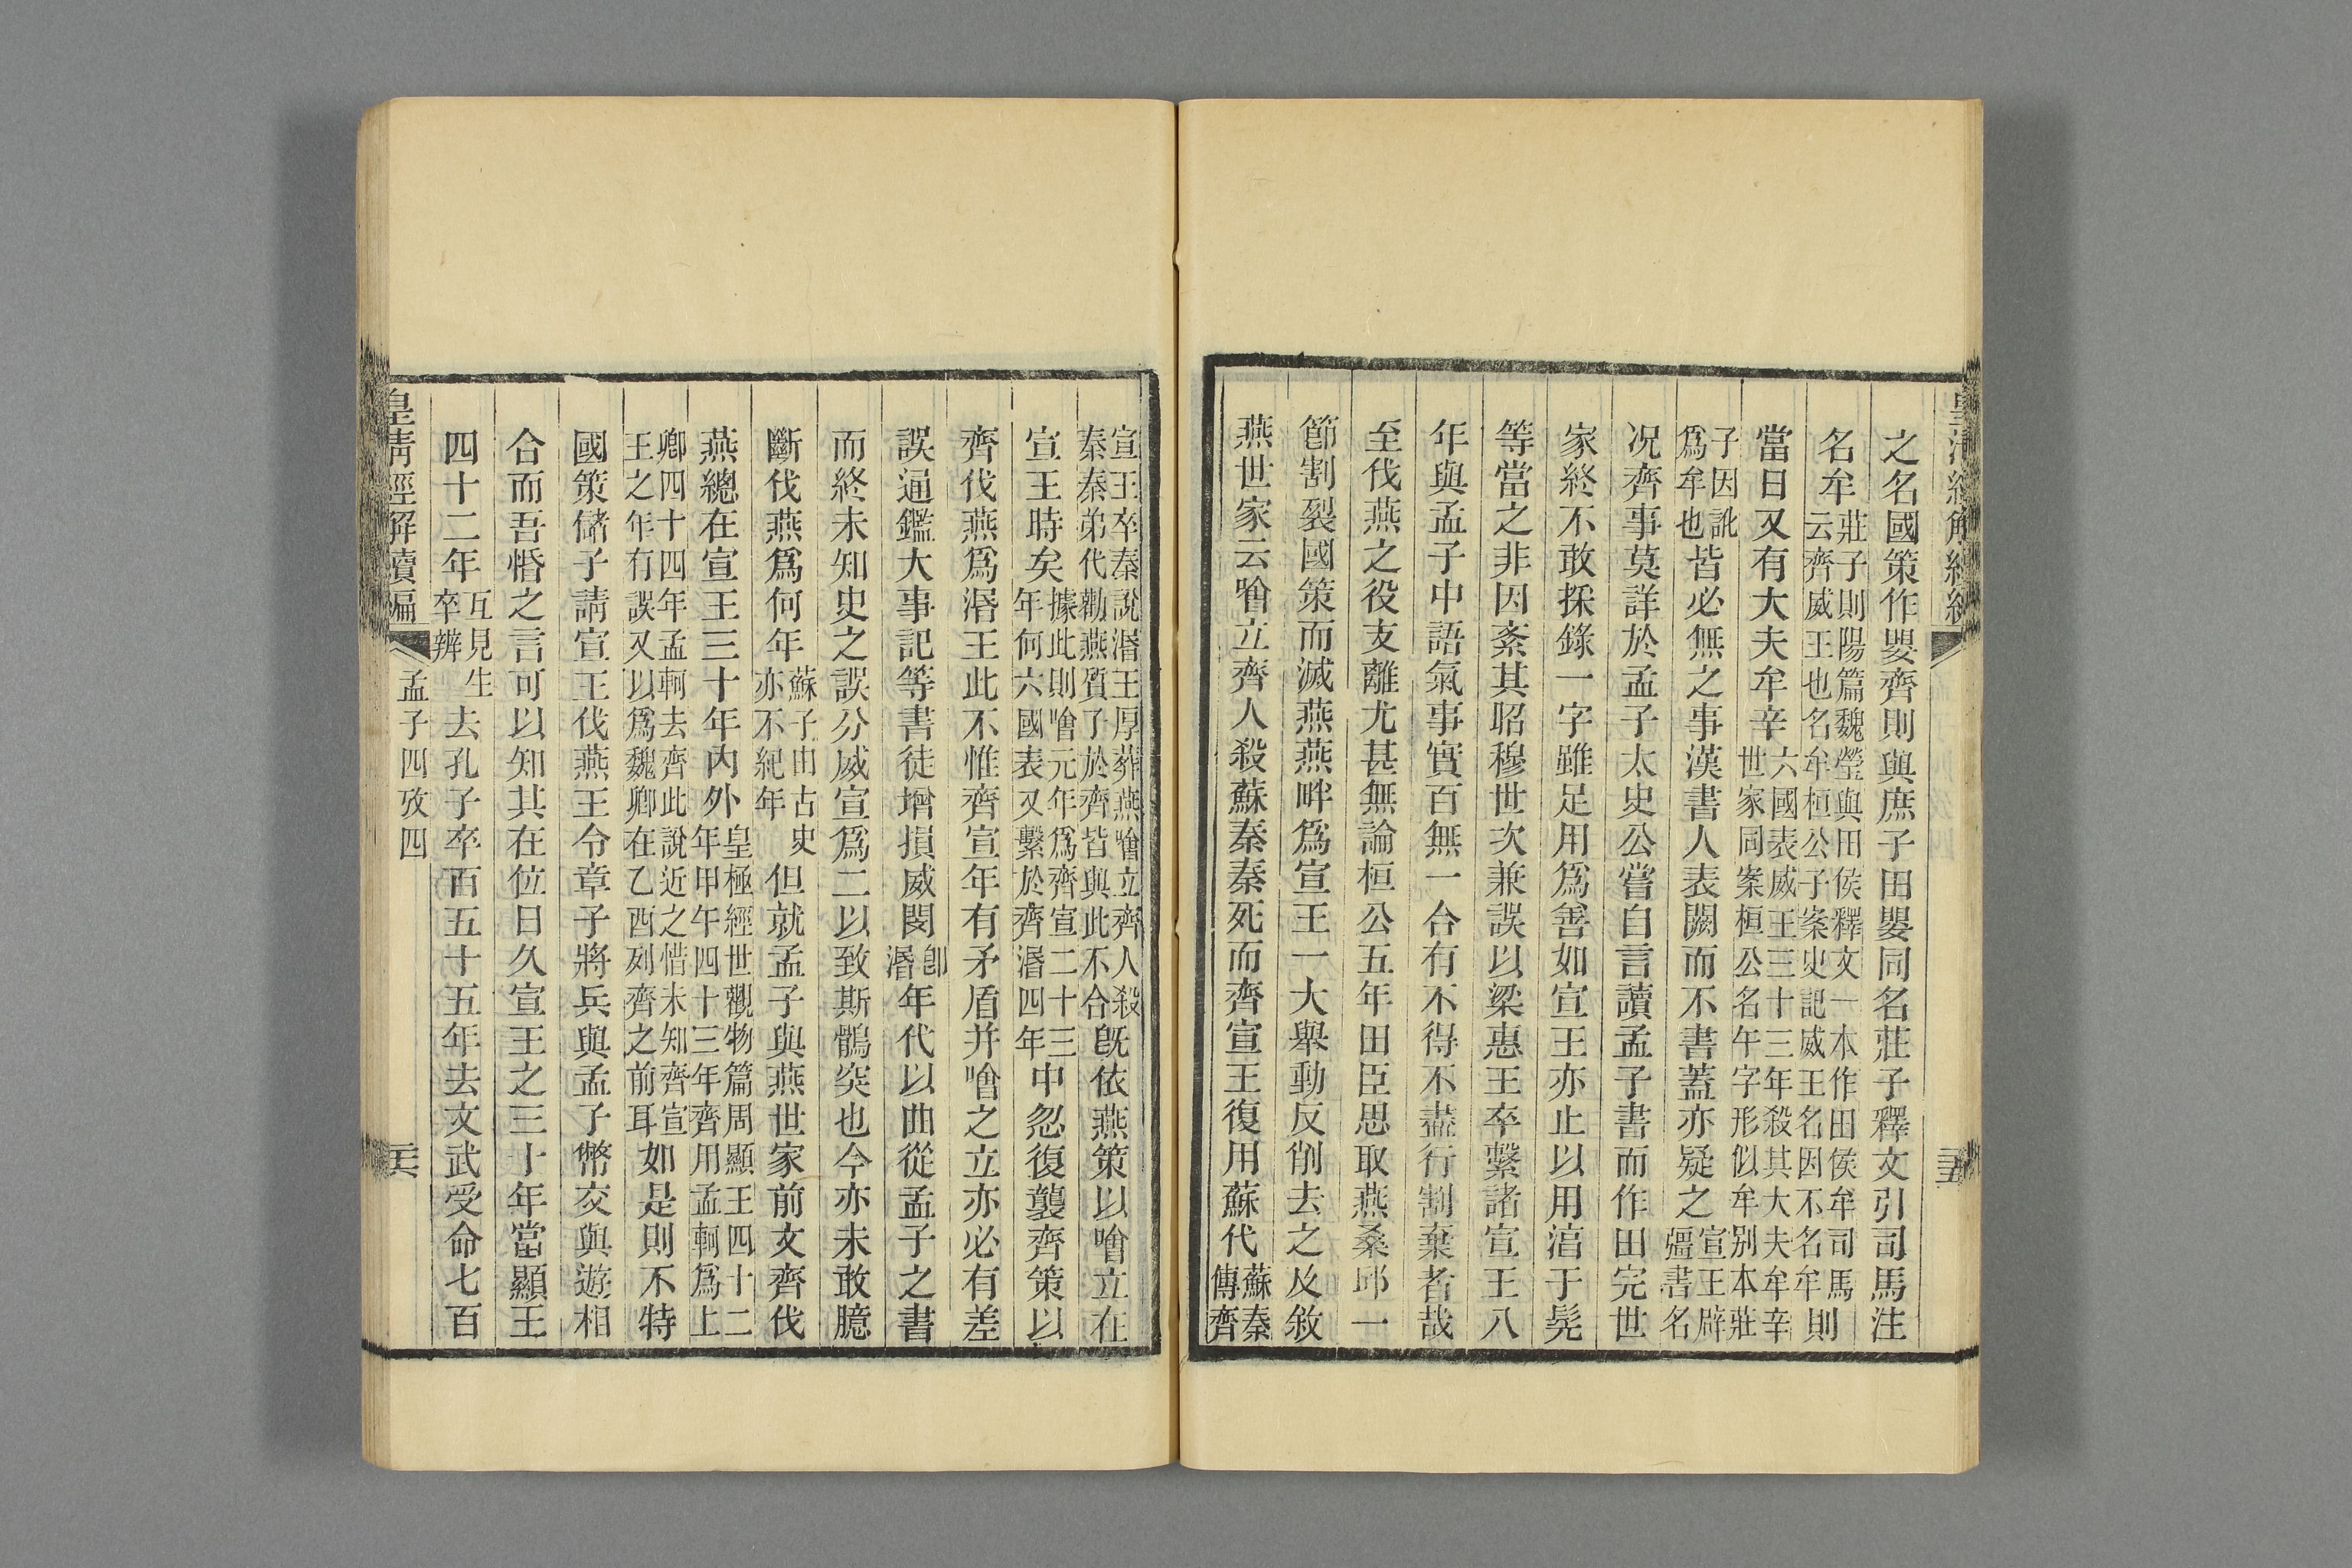 之名國策作嬰齊則與庶子田嬰同名莊子釋文引司馬注
名牟莊子則陽篇魏瑩與田侯釋文一本作田侯牟司馬
云齊威王也名牟桓公子案史記威王名因不名牟則
當日又有大夫牟辛六國表威王三十三年殺其大夫牟辛
世家同案桓公名午字形似牟別本莊
子因訛
爲牟也皆必無之事漢書人表闕而不書蓋亦疑之宣王辟
彊書名
况齊事莫詳於孟子太史公嘗自言讀孟子書而作田完世
家終不敢採錄一字雖足用爲善如宣王亦止以用淳于髡
等當之非因紊其昭穆世次兼誤以梁惠王卒繫諸宣王八
年與孟子中語氣事實百無一合有不得不盡行割棄者哉
至伐燕之役支離尤甚無論桓公五年田臣思取燕桑邱一
節割裂國策而滅燕燕畔爲宣王一大舉動反削去之及敘
燕世家云噲立齊人殺蘇秦秦死而齊宣王復用蘇代蘇秦
傳齊
宣王卒秦說湣王厚葬燕噲立齊人殺
秦秦弟代勸燕質子於齊皆與此不合旣依燕策以噲立在
宣王時矣據此則噲元年爲齊宣二十三
年何六國表又繫於齊湣四年中忽復襲齊策以
齊伐燕爲湣王此不惟齊宣年有矛盾并噲之立亦必有差
誤通鑑大事記等書徒增損威閔卽
湣年代以曲從孟子之書
而終未知史之誤分威宣爲二以致斯鶻突也今亦未敢臆
斷伐燕爲何年蘇子由古史
亦不紀年但就孟子與燕世家前文齊伐
燕總在宣王三十年內外皇極經世觀物篇周顯王四十二
年甲午四十三年齊用孟軻爲上
卿四十四年孟軻去齊此說近之惜未知齊宣
王之年有誤又以爲魏卿在乙酉列齊之前耳如是則不特
國策儲子請宣王伐燕王令章子將兵與孟子幣交與遊相
合而吾惛之言可以知其在位日久宣王之三十年當顯王
四十二年互見生
卒辨去孔子卒百五十五年去文武受命七百
皇清經解續編
孟子四攷四